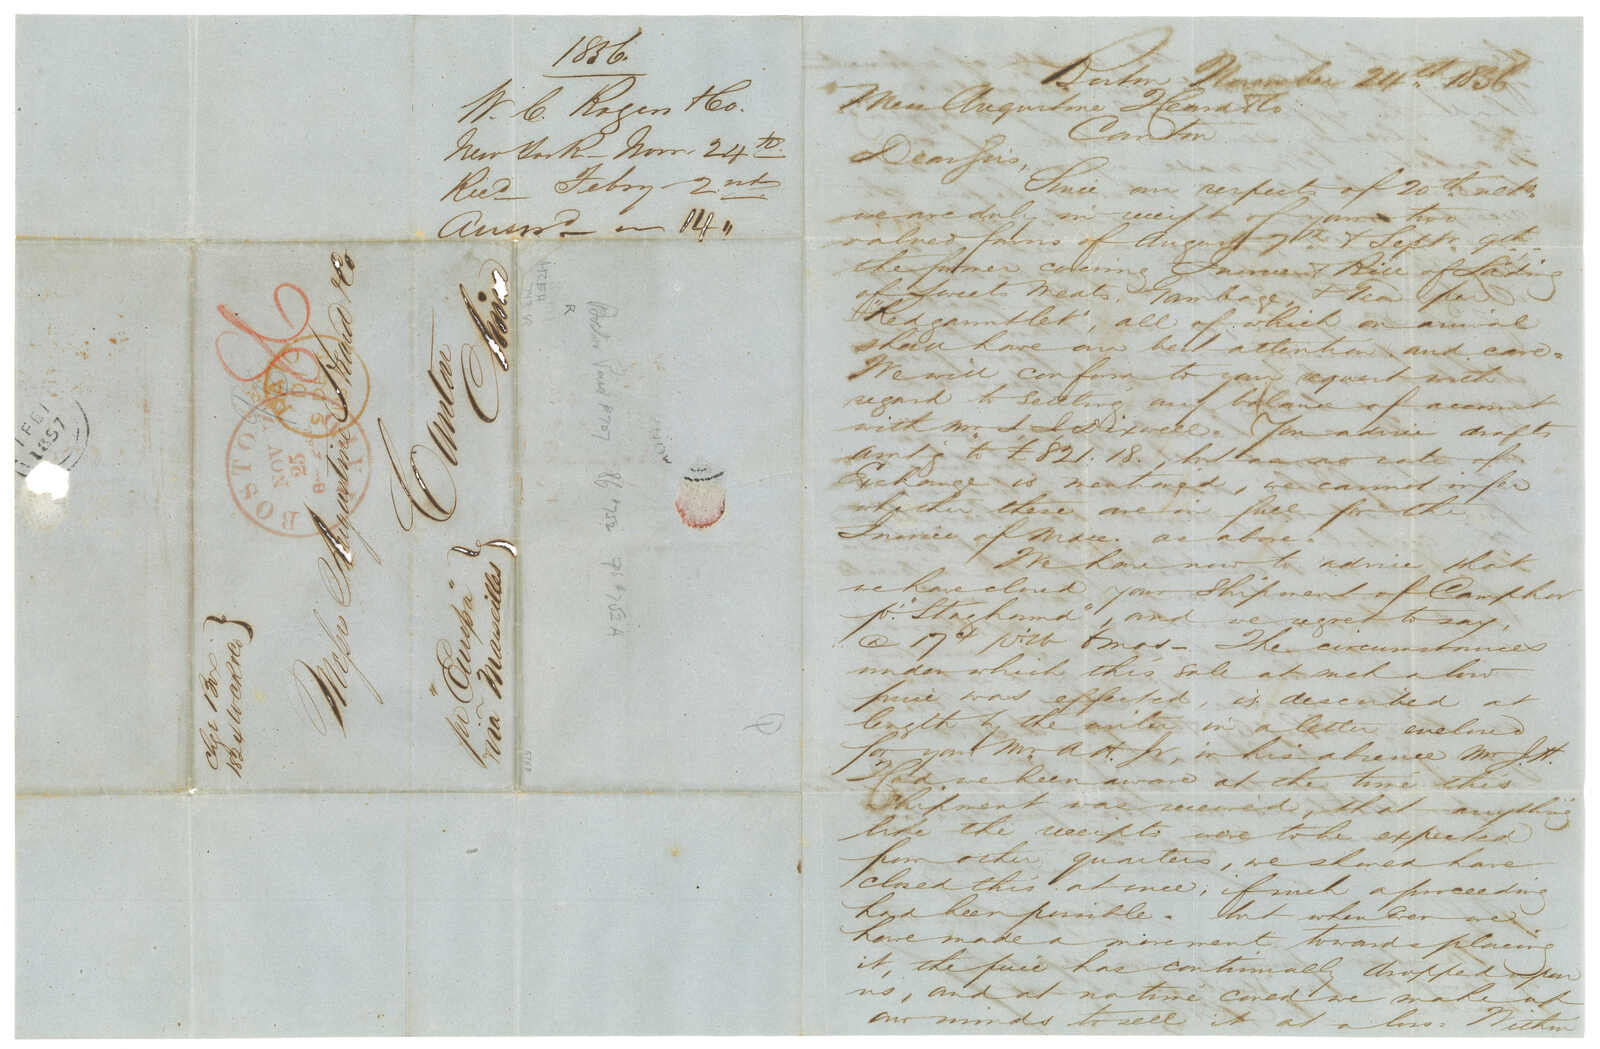 1856.
W. C. Rogers & Co.
New York Novr. 24th
Recd Febry 2nd
Answd 14 "
BOSTON
NOV
25
1857
Messrs Augustine Heard & Co
Canton
China
per "Europa"
via Marseilles
Boston November 24th 1856
Mess Augustine Heard & Co
Canton
Dear Sirs,
Since our respects of 20th
we are duly in receipt of your two
valued favors of August 7th & Septr. 9th
the former covering Invoice & Bill of Lading
of Sweet Meats, Gambage, & Tea per
"Redgauntlet", all of which on arrival
shall have our best attention and care.
We will conform to your request with
regard to settling any balance of account
with Mr. Dixwell. You advise drafts
amtg to £821.18., but as no rate of
Exchange is mentioned, we cannot infer
whether these are in full for the
Invoice of Mdze. as above.
We have now to advise that
we have closed your Shipment of Camphor
pr. "Staghound", and we regret to say,
@ 17¢ lb 6 mos. The circumstances
under which this sale at such a low
price was effected, is described at
length by the writer in a letter enclosed
for your Mr. A. H. Jr, in his absence Mr. J. H.
Had we been aware at the time this
Shipment was received, that anything
like the receipts were to be expected
from other quarters, we should have
closed this at once, if such a proceeding
had been possible. But when ever we
have made a movement towards placing
it, the price has continually dropped upon
us, and at no time could we make up
our minds to sell it at a loss. Within